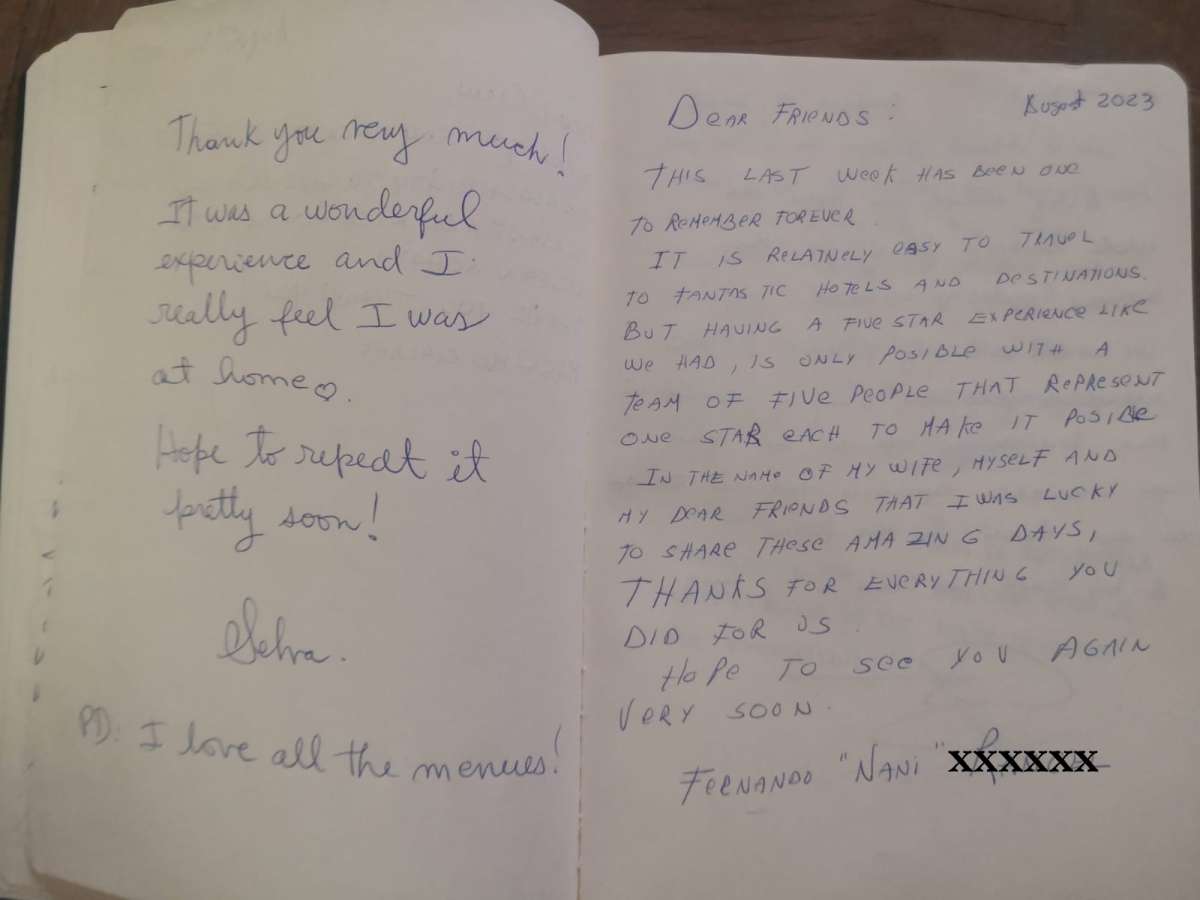 Thank you very much!
It was a wonderful
experience and I
really feel I was
at home♡.
Hope to repeat it
pretty soon!
Selva.
PD: I love all the menues!
August 2023
DEAR FRIENDS:
THIS LAST WEEK HAS BEEN ONE
TO REMEMBER FOREVER.
IT IS RELATIVELY EASY TO TRAVEL
TO FANTASTIC HOTELS AND DESTINATIONS.
BUT HAVING A FIVE STAR EXPERIENCE LIKE
WE HAD, IS ONLY POSIBLE WITH A
TEAM OF FIVE PEOPLE THAT REPRESENT
ONE STAR EACH TO MAKE IT POSIBLE
IN THE NAME OF MY WIFE, MYSELF AND
MY DEAR FRIENDS THAT I WAS LUCKY
TO SHARE THESE AMAZING DAYS,
THANKS FOR EVERYTHING YOU
DID FOR US.
HOPE TO SEE YOU AGAIN
VERY SOON.
FERNANDO "NANI" XXXXXX